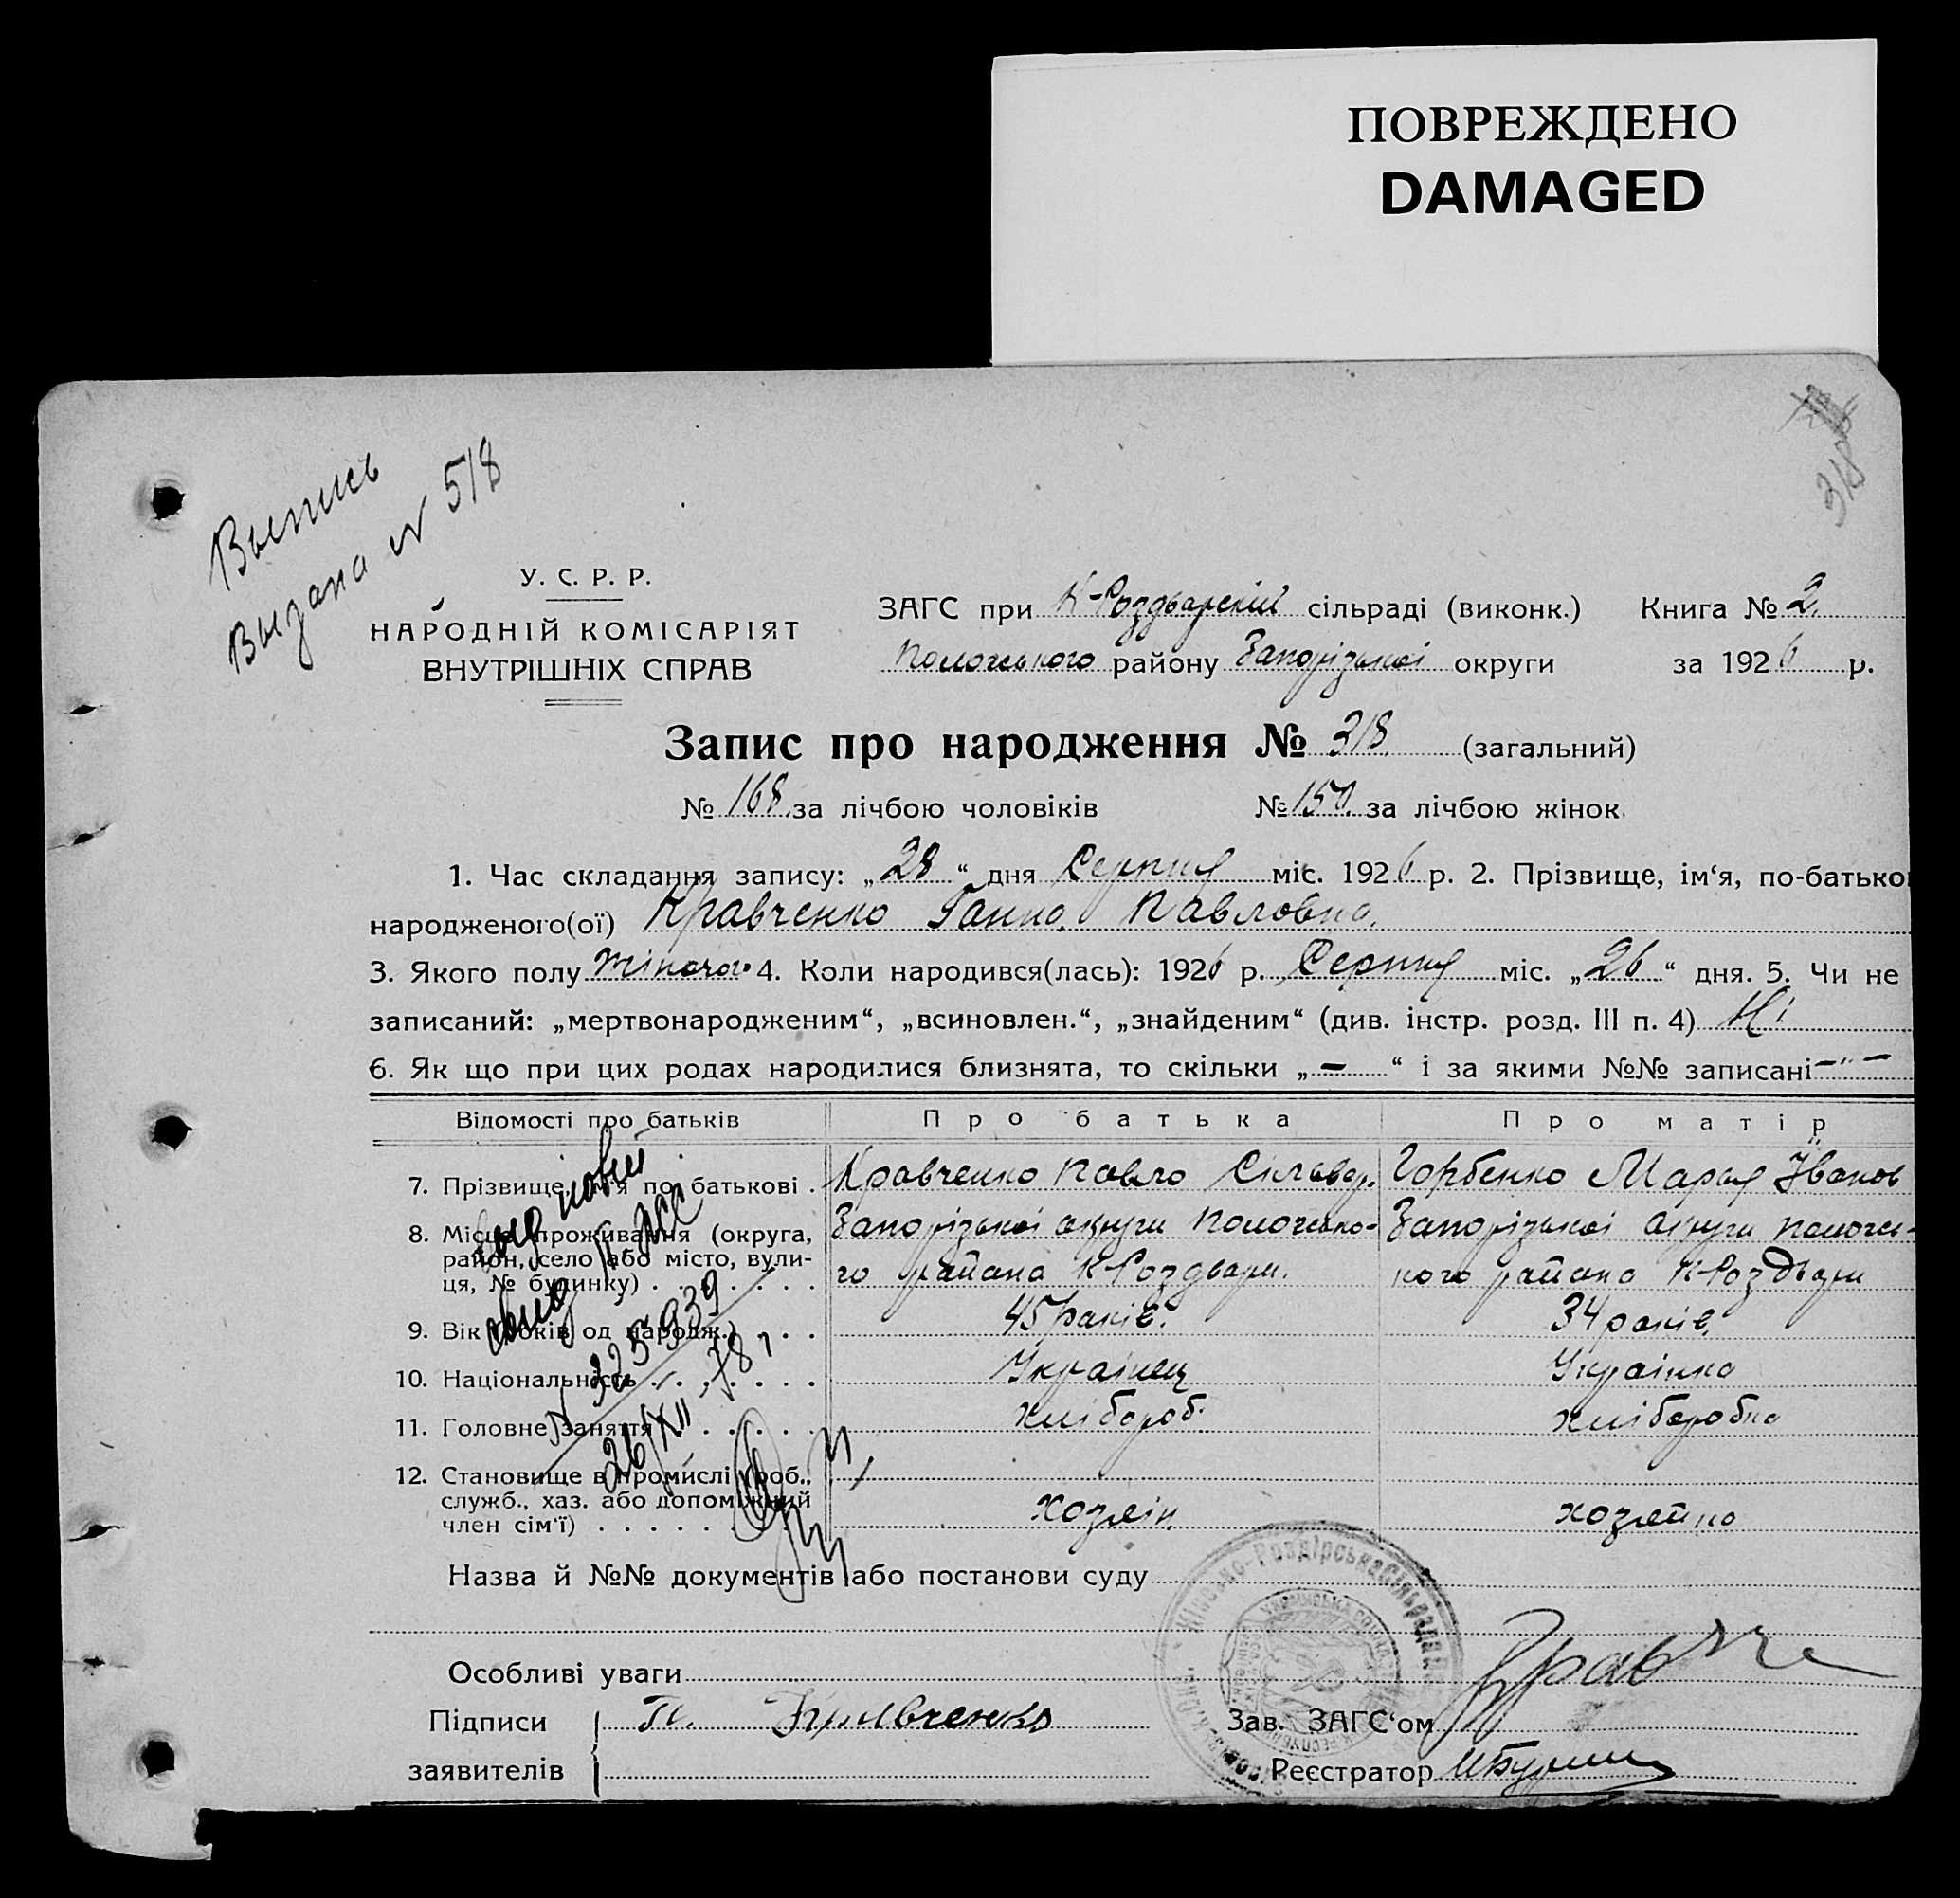 ПОВРЕЖДЕНО
DAMAGED
318
Выпись
Выдана N 518
У. С. Р. Р.
НАРОДНІЙ КОМІСАРІЯТ
ВНУТРІШНІХ СПРАВ
ЗАГС при К-Роздварскій сільраді (виконк.) Книга № 2.
Пологського району Запорізької округи за 1926 р.
Запис про народження № 318 (загальний)
№ 168 за лічбою чоловіків № 150. за лічбою жінок.
1. Час складання запису: „28“ дня Серпня міс. 1926 р. 2. Прізвище, ім‘я, по-батько
народженого(ої) Кравченко Ганна Павловна.
3. Якого полу жіноча. 4. Коли народився(лась): 1926 р. Серпня міс. „26“ дня. 5. Чи не
записаний: „мертвонародженим“, „всиновлен.“, „знайденим“ (див. інстр. розд. III п. 4) Ні
6. Як що при цих родах народилися близнята, то скільки „—“ і за якими №№ записані —"—
Відомості про батьків Про батька Про матір
7. Прізвище, ім‘я по батькові . Кравченко Павло Сільвер. Горбенко Мария Іванов
8. Місце проживання (округа, район, село або місто, вулиця, № будинку) . . . . . . Запорізької округи Пологсько-
го района К-Роздвари. Запорізької округи Пологсь-
кого района К-Роздвари
9. Вік (років од народж.) . . . 45 років. 34 років.
10. Національність . . . . . . Українец Українка
11. Головне заняття . . . . . . хлібороб. хліборобка
12. Становище в промислі (роб.,
служб., хаз. або допоміжний
член сім‘ї) . . . . . . хозяін хозяйка
N 325939
26/XII-78 г
Назва й №№ документів або постанови суду
Особливі уваги
Підписи П. Кравченко Зав. ЗАГС‘ом
заявителів Реєстратор